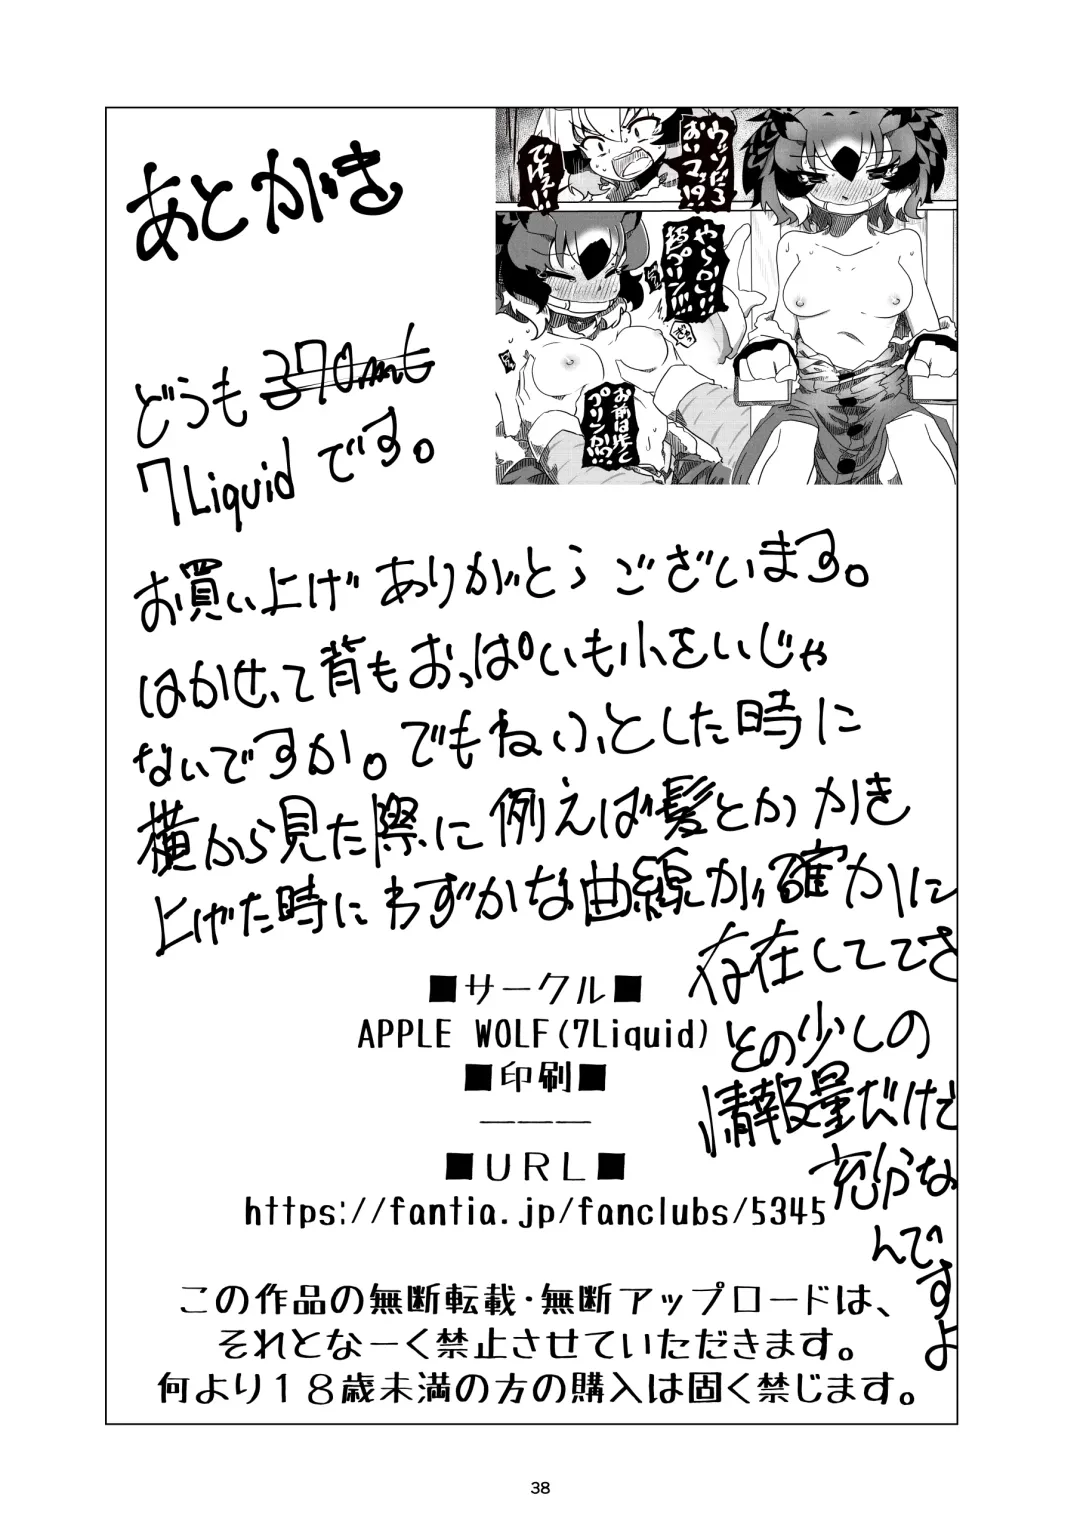 あとがき
ウッソだろ
でけェ!!
お前は歩く
プリンか!?
どうも 370ml
7Liquid です。
お買い上げ ありがとう ございます。
はかせって背もおっぱいも小さいじゃ
ないですか。でもねふとした時に
横から見た際に例えば髪とかかき
上げた時にわずかな曲線が確かに
存在しててさ
その少しの
情報量だけど
んで
すよ
■サークル■
APPLE WOLF(7Liquid)
■印刷■
———
■URL■
https://fantia.jp/fanclubs/5345
この作品の無断転載・無断アップロードは、
それとな～く禁止させていただきます。
何より18歳未満の方の購入は固く禁じます。
38